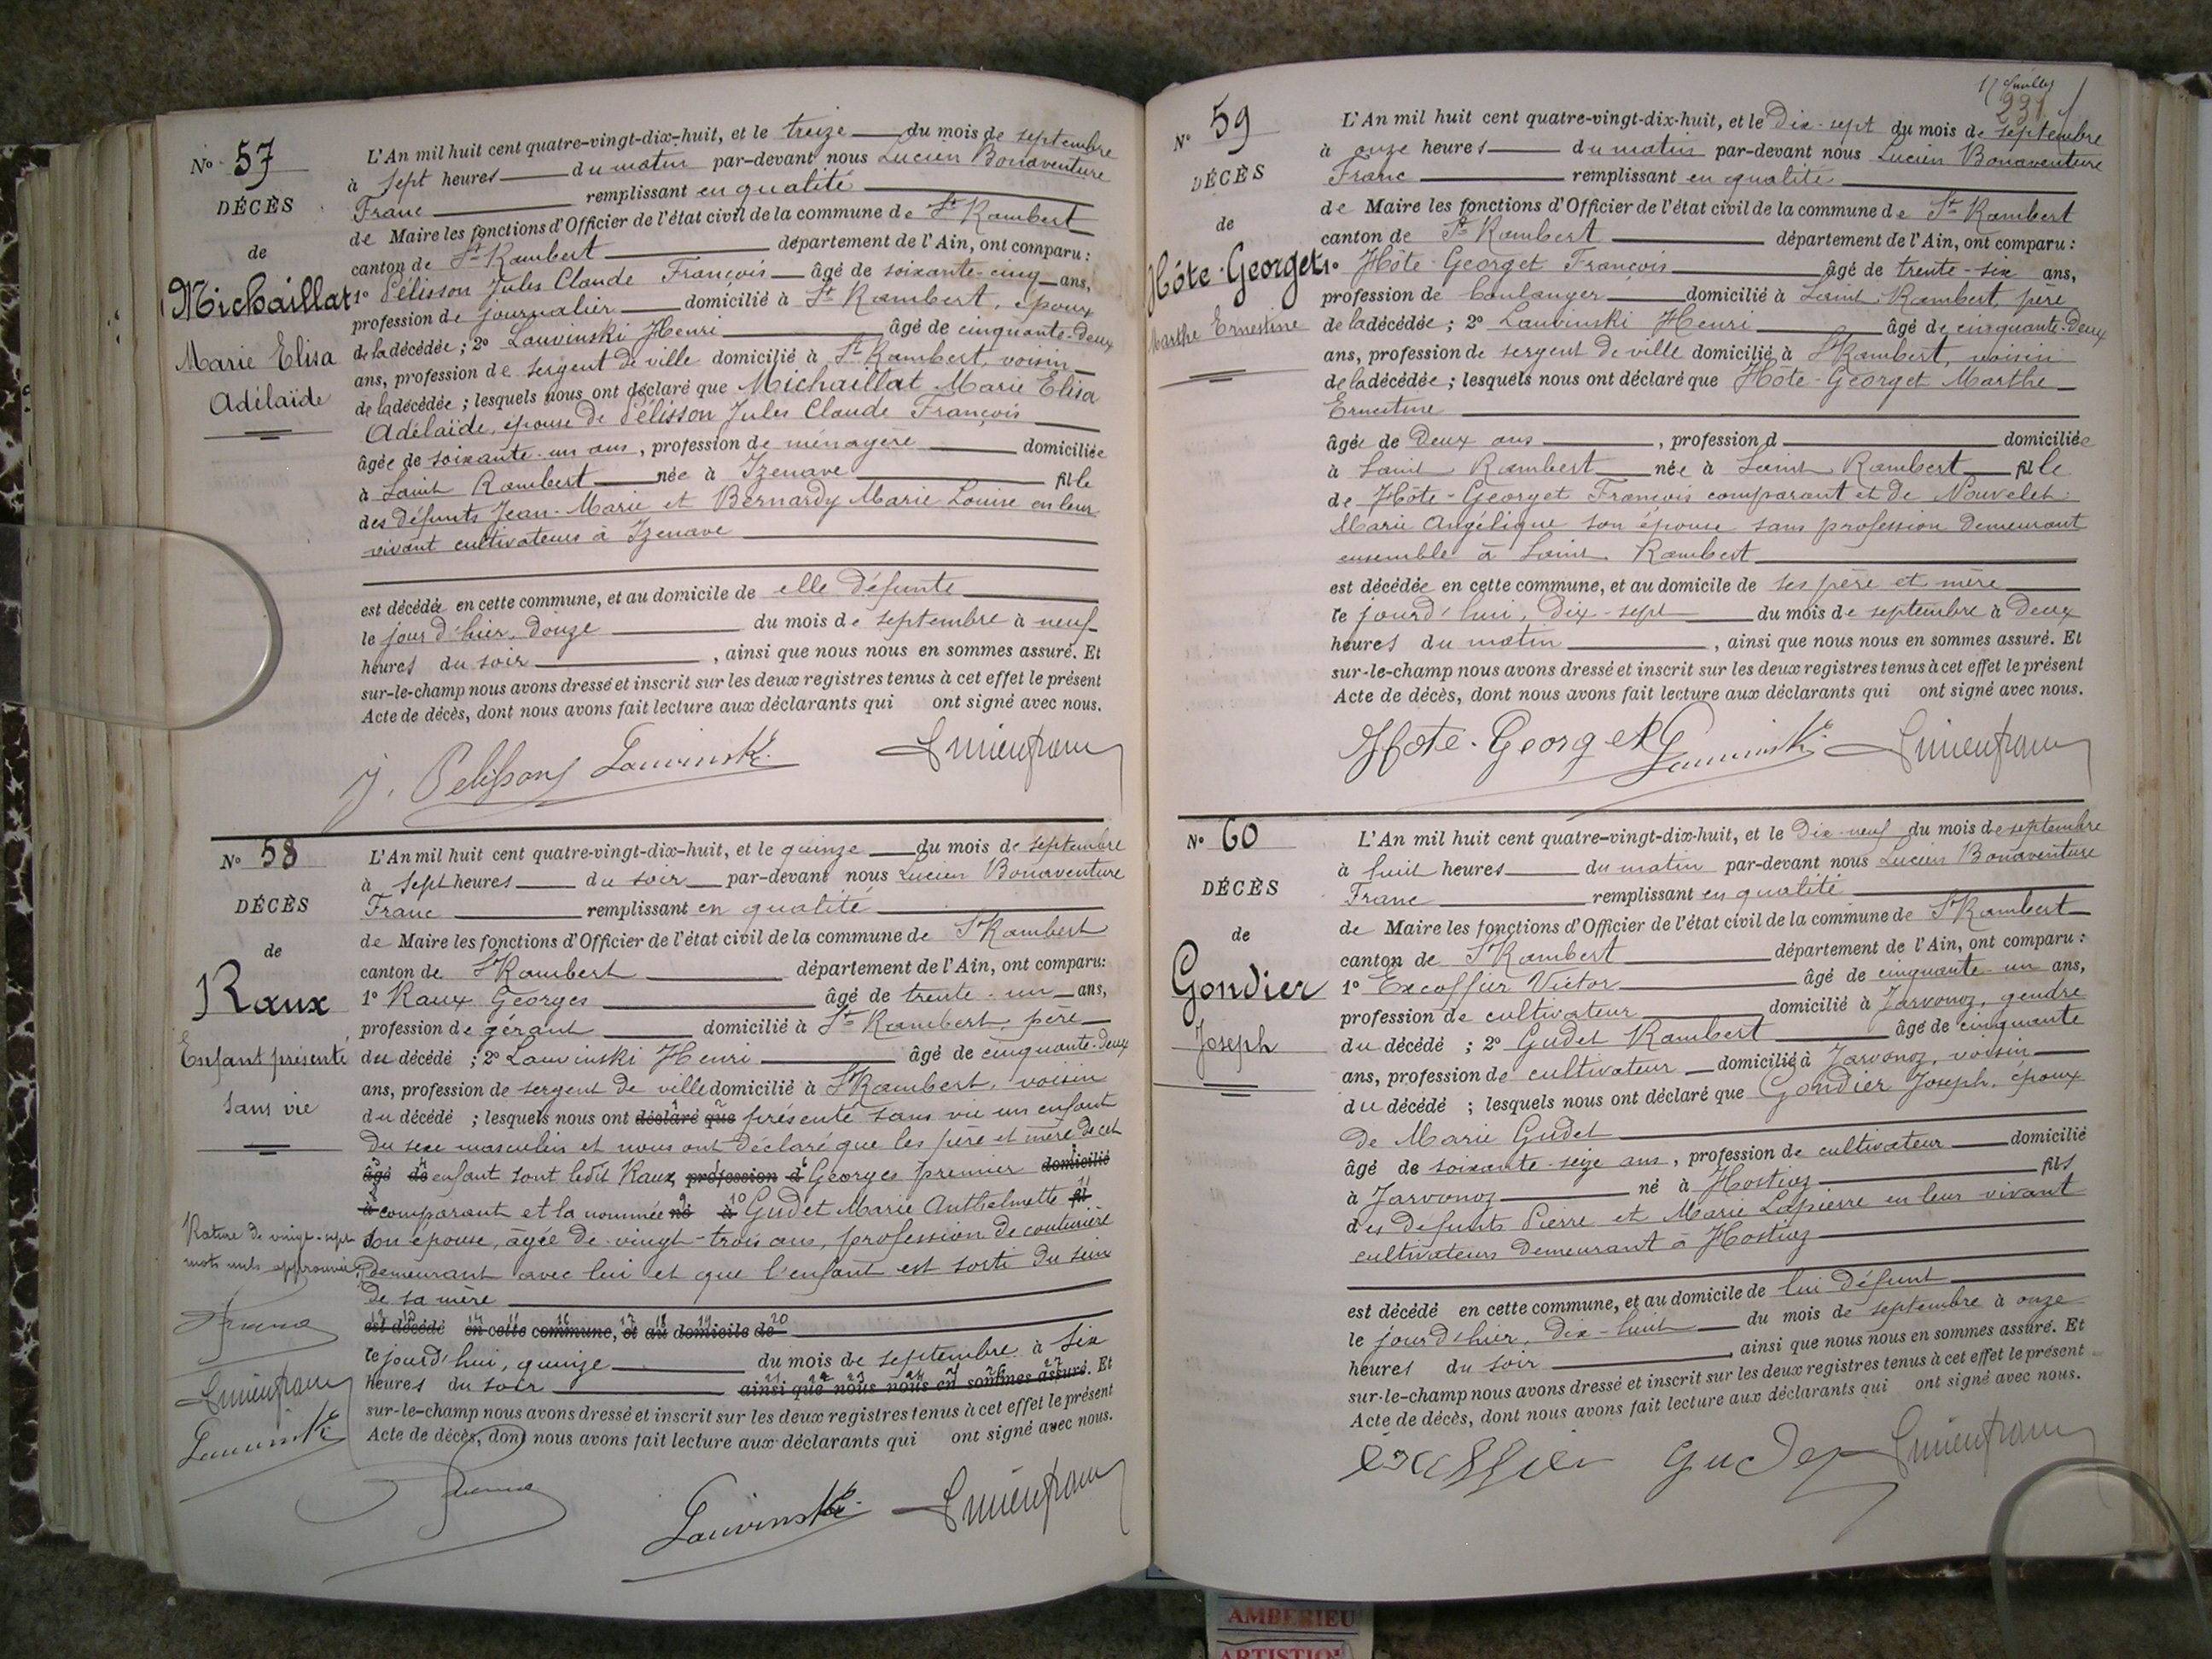 N° 57
DÉCÈS
de
Michaillat
Marie Elisa
Adélaïde
L'An mil huit cent quatre-vingt-dix-huit, et le treize du mois de septembre
à sept heures du matin par-devant nous Lucien Bonaventure
Franc remplissant en qualité
de Maire les fonctions d'Officier de l'état civil de la commune de St Rambert
canton de St Rambert département de l'Ain, ont comparu :
1° Pélisson Jules Claude François âgé de soixante-cinq ans,
profession de journalier domicilié à St Rambert, époux
de la décédée ; 2° Lauvinski Henri âgé de cinquante-deux
ans, profession de sergent de ville domicilié à St Rambert, voisin
de la décédée ; lesquels nous ont déclaré que Michaillat Marie Elisa
Adélaïde, épouse de Pélisson Jules Claude François
âgée de soixante-un ans, profession de ménagère domiciliée
à Saint Rambert née à Izenave fille
des défunts Jean-Marie et Bernardy Marie Louise en leur
vivant cultivateurs à Izenave
est décédée en cette commune, et au domicile de elle défunte
le jour d'hier, douze du mois de septembre à neuf
heures du soir, ainsi que nous nous en sommes assuré. Et
sur-le-champ nous avons dressé et inscrit sur les deux registres tenus à cet effet le présent
Acte de décès, dont nous avons fait lecture aux déclarants qui ont signé avec nous.
J. Pelisson Lauvinski Lucien franc
N° 58
DÉCÈS
de
Raux
Enfant présenté
sans vie
L'An mil huit cent quatre-vingt-dix-huit, et le quinze du mois de septembre
à sept heures du soir par-devant nous Lucien Bonaventure
Franc remplissant en qualité
de Maire les fonctions d'Officier de l'état civil de la commune de St Rambert
canton de St Rambert département de l'Ain, ont comparu :
1° Raux Georges âgé de trente-un ans,
profession de gérant domicilié à St Rambert, père
du décédé ; 2° Lauvinski Henri âgé de cinquante-deux
ans, profession de sergent de ville domicilié à St Rambert, voisin
du décédé ; lesquels nous ont déclaré que présenté sans vie un enfant
du sexe masculin et nous ont déclaré que les père et mère de cet
âgé de enfant sont ledit Raux profession d Georges premier domicilié
à comparant et la nommée né à Gudet Marie Anthelmette fil
son épouse, âgée de vingt-trois ans, profession de couturière
demeurant avec lui et que l'enfant est sorti du sein
de sa mère
est décédé en cette commune, et au domicile de
le jourd'hui, quinze du mois de septembre à six
heures du soir ainsi que nous nous en sommes assuré. Et
sur-le-champ nous avons dressé et inscrit sur les deux registres tenus à cet effet le présent
Acte de décès, dont nous avons fait lecture aux déclarants qui ont signé avec nous.
Rature de vingt-sept
mots nuls approuvée
Lucien franc
Lauvinski
Lauvinski Lucien franc
N° 59
DÉCÈS
de
Hôte-Georget
Marthe Ernestine
231
L'An mil huit cent quatre-vingt-dix-huit, et le dix-sept du mois de septembre
à onze heures du matin par-devant nous Lucien Bonaventure
Franc remplissant en qualité
de Maire les fonctions d'Officier de l'état civil de la commune de St Rambert
canton de St Rambert département de l'Ain, ont comparu :
1° Hôte-Georget François âgé de trente-six ans,
profession de boulanger domicilié à Saint Rambert, père
de la décédée ; 2° Lauvinski Henri âgé de cinquante-deux
ans, profession de sergent de ville domicilié à St Rambert, voisin
de la décédée ; lesquels nous ont déclaré que Hôte-Georget Marthe
Ernestine
âgée de deux ans, profession d domiciliée
à Saint Rambert née à Saint Rambert fille
de Hôte-Georget François comparant et de Nouvelet
Marie Angélique son épouse sans profession demeurant
ensemble à Saint Rambert
est décédée en cette commune, et au domicile de ses père et mère
le jourd'hui, dix-sept du mois de septembre à deux
heures du matin, ainsi que nous nous en sommes assuré. Et
sur-le-champ nous avons dressé et inscrit sur les deux registres tenus à cet effet le présent
Acte de décès, dont nous avons fait lecture aux déclarants qui ont signé avec nous.
Hote-Georget Lauvinski Lucien franc
N° 60
DÉCÈS
de
Gondier
Joseph
L'An mil huit cent quatre-vingt-dix-huit, et le dix-neuf du mois de septembre
à huit heures du matin par-devant nous Lucien Bonaventure
Franc remplissant en qualité
de Maire les fonctions d'Officier de l'état civil de la commune de St Rambert
canton de St Rambert département de l'Ain, ont comparu :
1° Excoffier Victor âgé de cinquante-un ans,
profession de cultivateur domicilié à Javornoz, gendre
du décédé ; 2° Gudet Rambert âgé de cinquante
ans, profession de cultivateur domicilié à Javornoz, voisin
du décédé ; lesquels nous ont déclaré que Gondier Joseph, époux
de Marie Gudet
âgé de soixante-seize ans, profession de cultivateur domicilié
à Javornoz né à Hostiaz fils
des défunts Pierre et Marie Lapierre en leur vivant
cultivateurs demeurant à Hostiaz
est décédé en cette commune, et au domicile de lui défunt
le jour d'hier, dix-huit du mois de septembre à onze
heures du soir, ainsi que nous nous en sommes assuré. Et
sur-le-champ nous avons dressé et inscrit sur les deux registres tenus à cet effet le présent
Acte de décès, dont nous avons fait lecture aux déclarants qui ont signé avec nous.
Excoffier Gudet Lucien franc
AMBERIEU